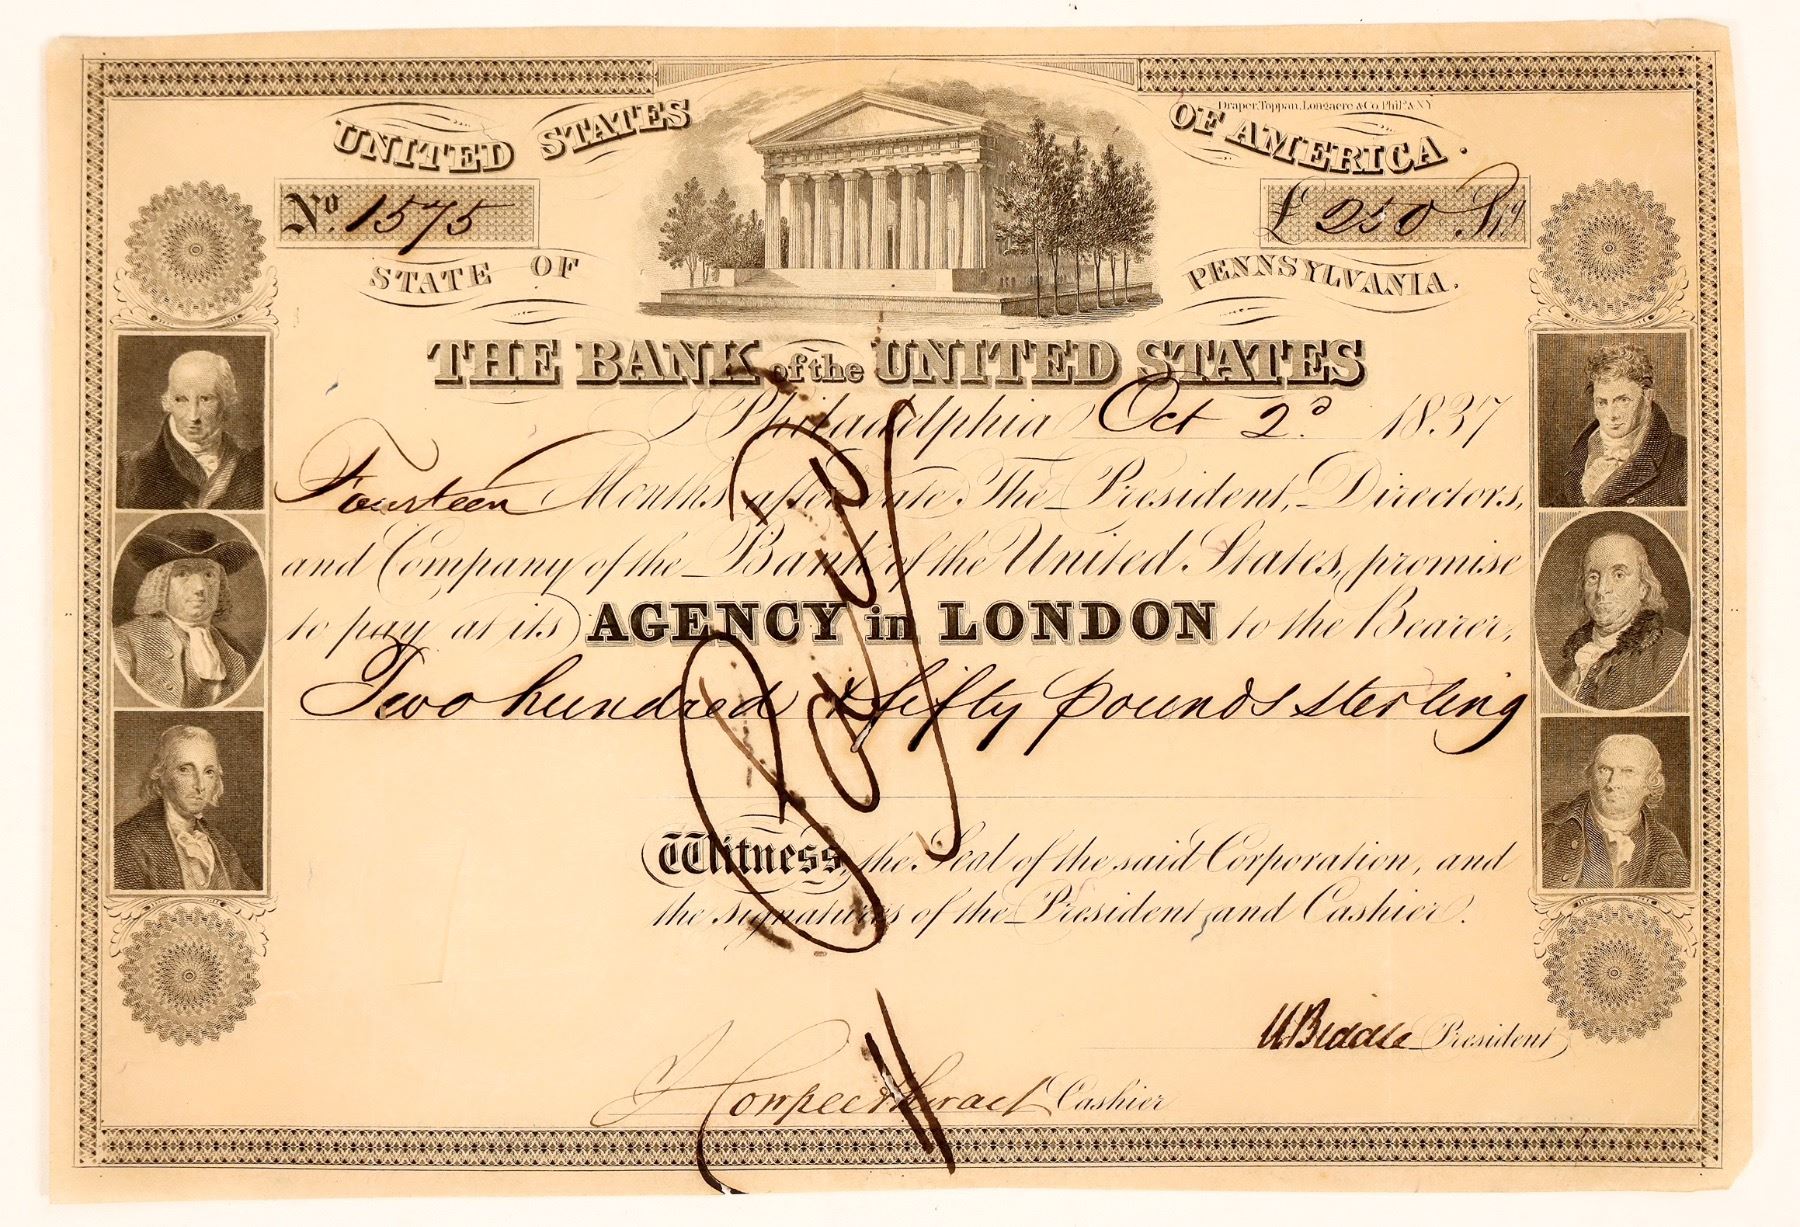 Draper, Toppan, Longacre & Co. Phil.ª & N.Y.
UNITED STATES OF AMERICA.
No. 1575
£ 250 Stg
STATE OF PENNSYLVANIA.
THE BANK of the UNITED STATES
Philadelphia Oct 2d. 1837
Fourteen Months after date The President, Directors,
and Company of the Bank of the United States, promise
to pay at its AGENCY in LONDON to the Bearer,
Two hundred & fifty pounds sterling
Paid
Witness, the Seal of the said Corporation, and
the signatures of the President and Cashier.
N Biddle President
Cashier